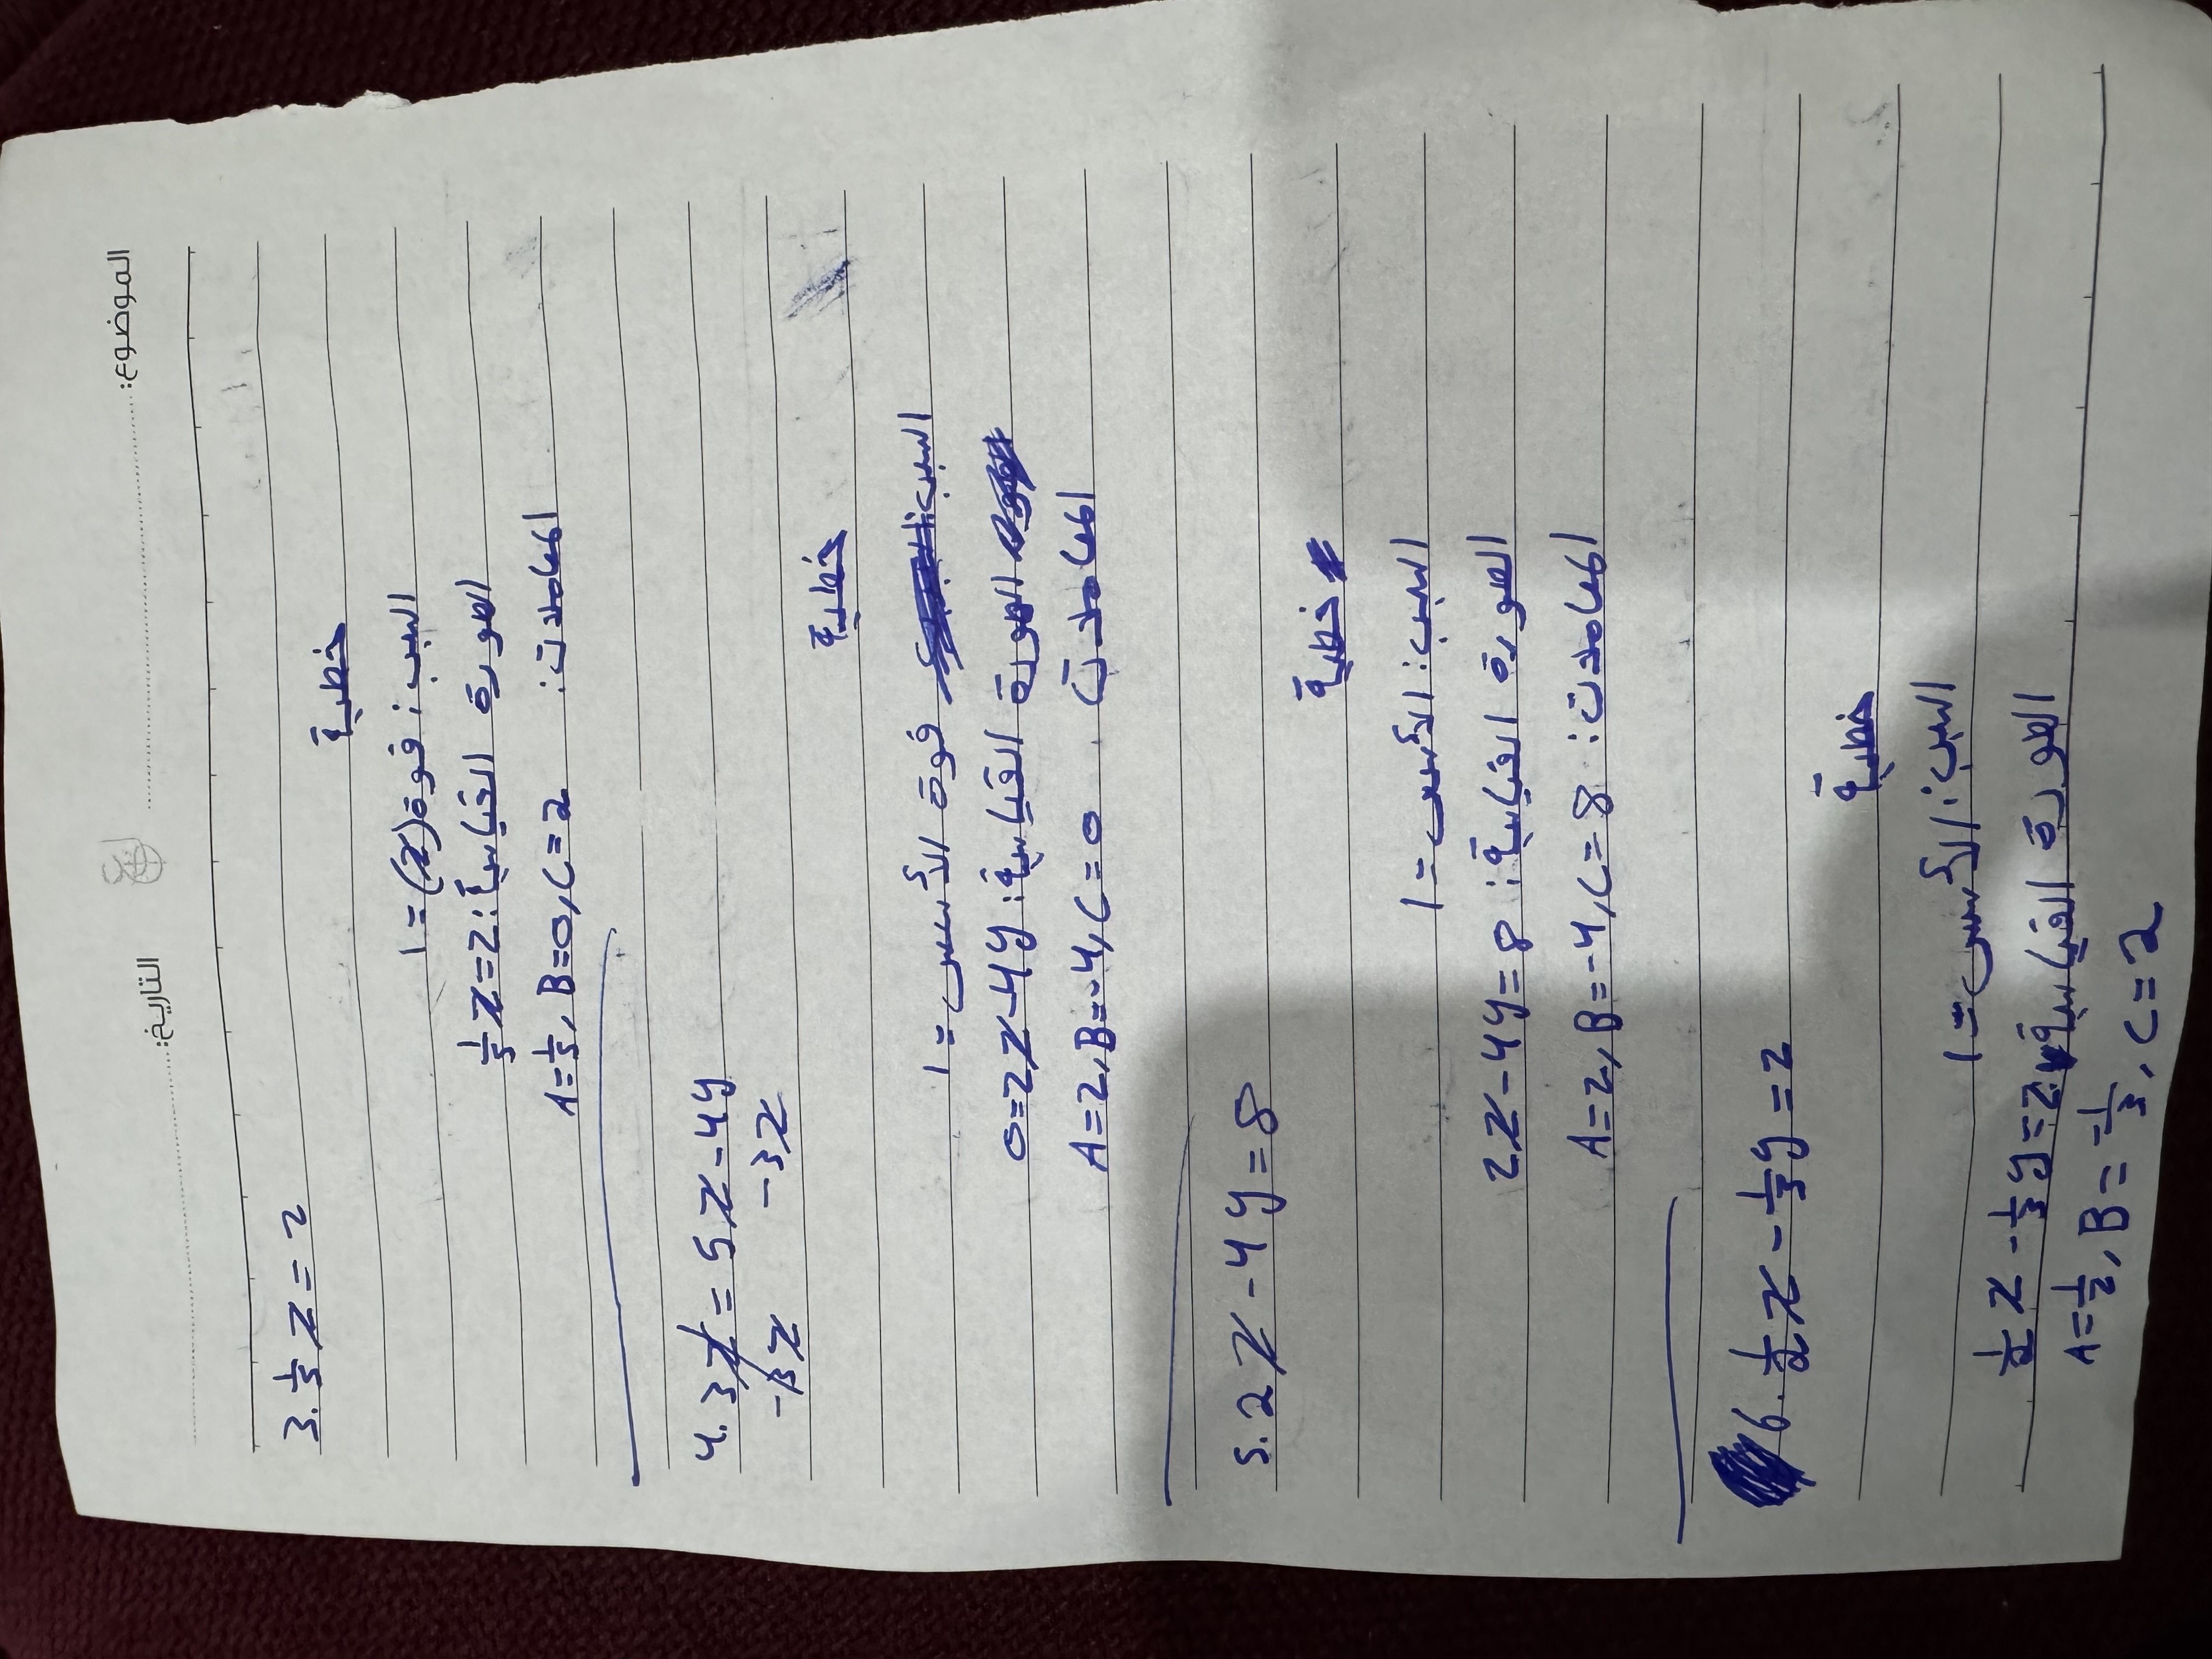 الموضوع: التاريخ:
3. 1/5 x = 2
خطية
السبب: قوة (x) = 1
الصورة القياسية: 1/5 x = 2
المعاملات: A = 1/5, B = 0, C = 2
4. 3x = 5x - 4y
-3x -3x
خطية
السبب: قوة الأسس = 1
الصورة القياسية: 0 = 2x - 4y
المعاملات A = 2, B = -4, C = 0
5. 2x - 4y = 8
خطية
السبب: الأسس = 1
الصورة القياسية: 2x - 4y = 8
المعاملات: A = 2, B = -4, C = 8
6. 1/2 x - 1/3 y = 2
خطية
السبب: الأسس = 1
الصورة القياسية 1/2 x - 1/3 y = 2
A = 1/2, B = -1/3, C = 2